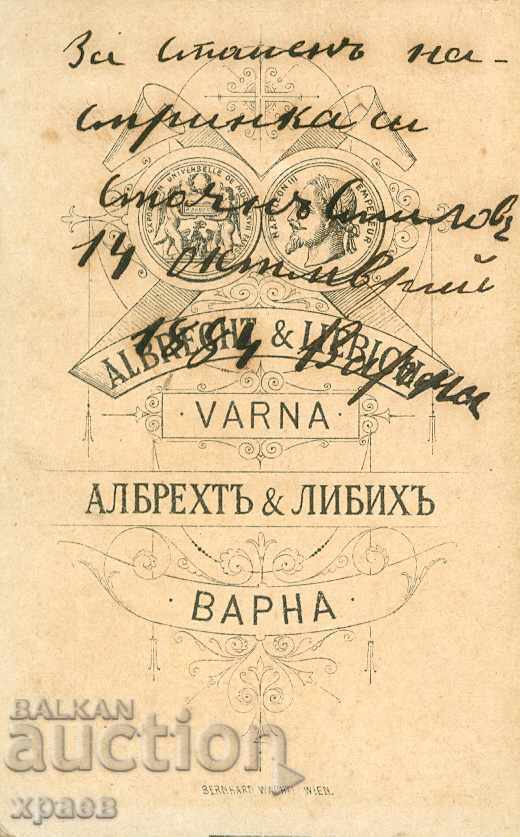 За споменъ на-
стринка си
Стоянъ
14 октомврий
Варна
EXPOSITION UNIVERSELLE DE
NAPOLEON III EMPEREUR
ALBRECHT & LIEBICH
VARNA
АЛБРЕХТЪ & ЛИБИХЪ
ВАРНА
BALKAN
auction
храев
BERNHARD WACHTL WIEN.